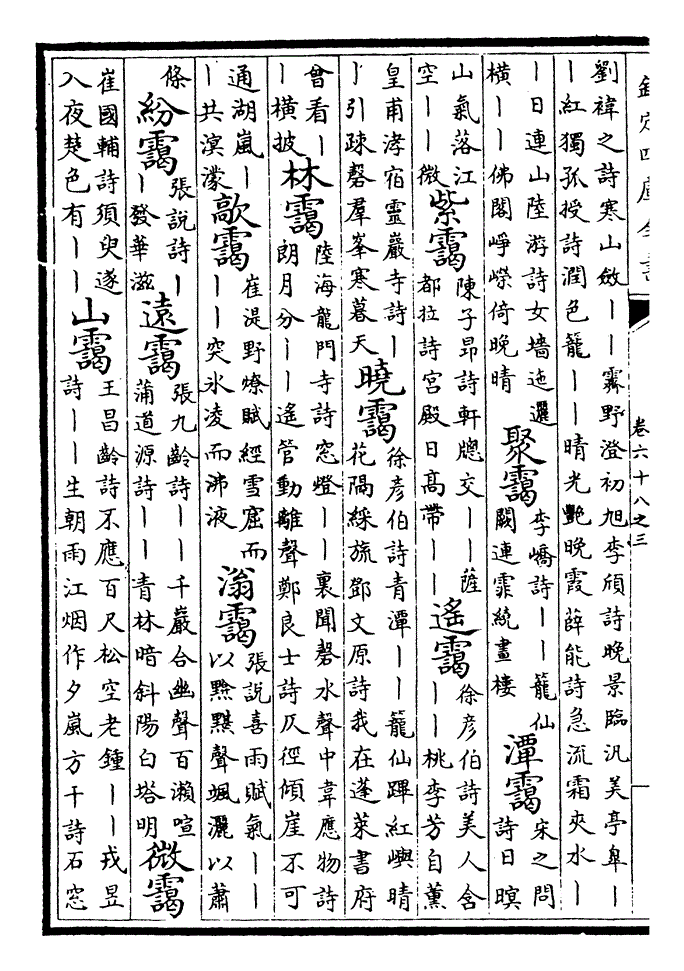 欽定四庫全書
卷六十八之三
劉禕之詩寒山斂丨丨霽野澄初旭李頎詩晚景臨汎美亭臯丨
丨紅獨孤授詩潤色籠丨丨晴光艷晚霞薛能詩急流霜夾水丨
丨日連山陸游詩女墻迤邐
橫丨丨佛閣崢嶸倚晚晴
聚靄
李嶠詩丨丨籠仙
闕連霏繞畫樓
潭靄
宋之問
詩日暝
山氣落江
空丨丨微
紫靄
陳子昂詩軒牕交丨丨薩
都拉詩宮殿日高帶丨丨
遙靄
徐彦伯詩美人含
丨丨桃李芳自薰
皇甫涍宿靈巖寺詩丨
丨引疎磬羣峯寒暮天
曉靄
徐彦伯詩青潭丨丨籠仙蹕紅嶼晴
花隔綵旒鄧文原詩我在蓬萊書府
曾看丨
丨橫披
林靄
陸海龍門寺詩窓燈丨丨裏聞磬水聲中韋應物詩
朗月分丨丨遙管動離聲鄭良士詩仄徑傾崖不可
通湖嵐丨
丨共溟濛
歊靄
崔湜野燎賦經雪窟而
丨丨突氷凌而沸液
滃靄
張說喜雨賦氣丨丨
以黪黮聲颯灑以蕭
條
紛靄
張說詩丨
丨發華滋
遠靄
張九齡詩丨丨千巖合幽聲百瀨喧
蒲道源詩丨丨青林暗斜陽白塔明
微靄
崔國輔詩須臾遂
入夜楚色有丨丨
山靄
王昌齡詩不應百尺松空老鍾丨丨戎昱
詩丨丨生朝雨江烟作夕嵐方干詩石窓